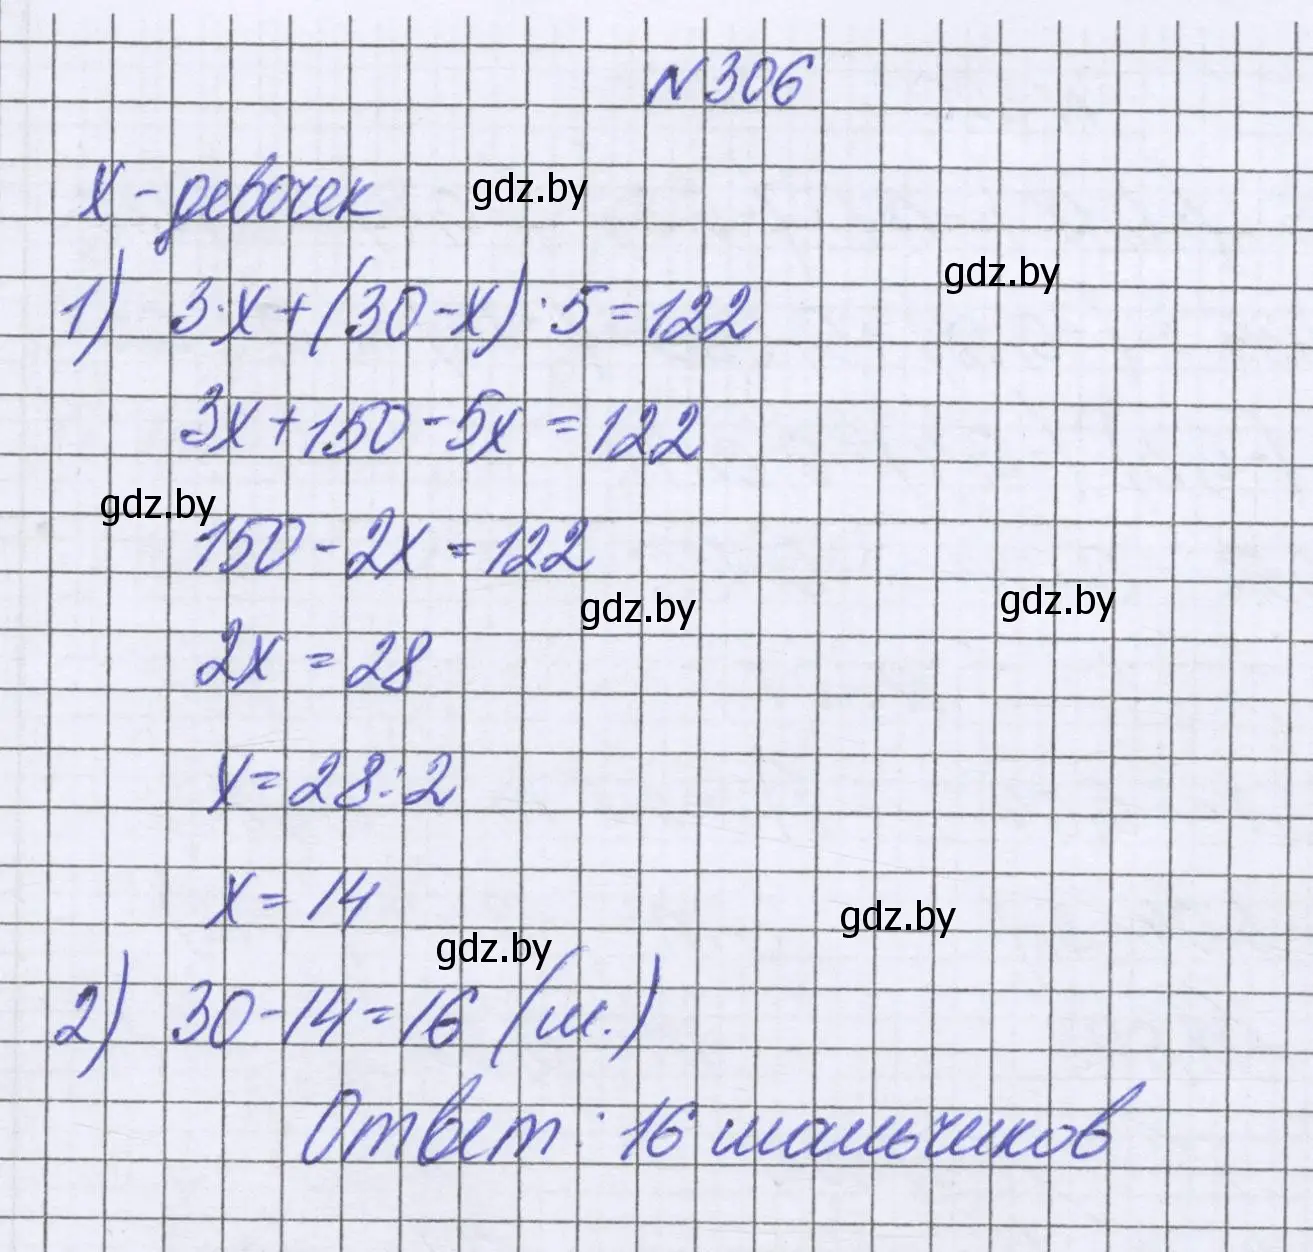 N 306
x - девочек gdz.by
gdz.by
1) 3·x + (30 - x) · 5 = 122
3x + 150 - 5x = 122
gdz.by
150 - 2x = 122
gdz.by gdz.by
2x = 28
x = 28 : 2
x = 14
gdz.by
gdz.by
2) 30 - 14 = 16 (м.)
Ответ: 16 мальчиков